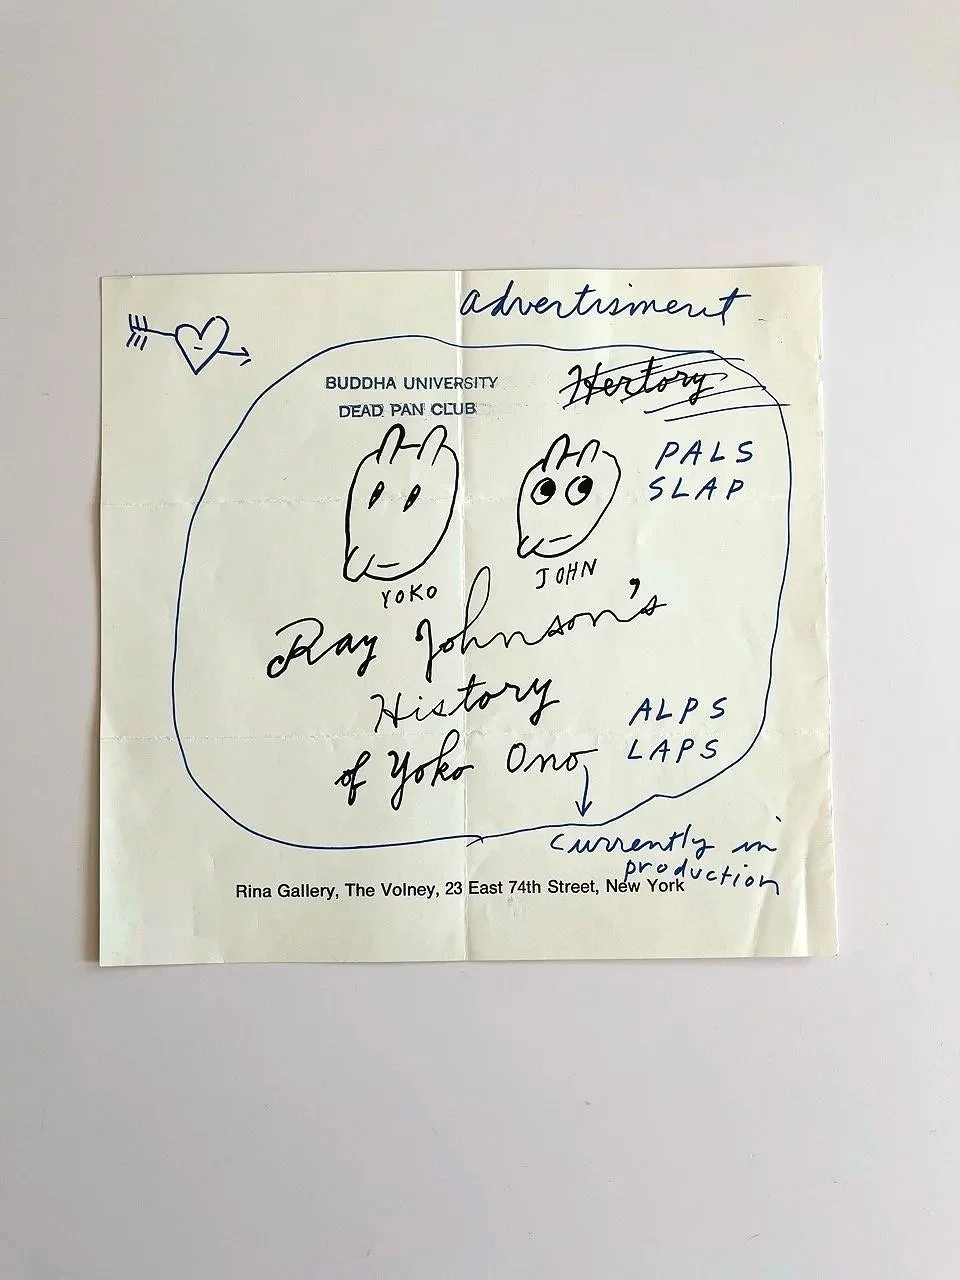 advertisment
BUDDHA UNIVERSITY
DEAD PAN CLUB
Hertory
PALS
SLAP
YOKO
JOHN
Ray Johnson's
History
of Yoko Ono
ALPS
LAPS
currently in
production
Rina Gallery, The Volney, 23 East 74th Street, New York